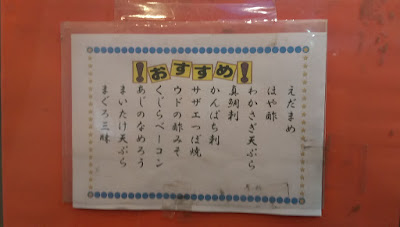 !おすすめ!
えだまめ
はや酢
わかさぎ天ぷら
真鯛刺
かんぱち刺
サザエつぼ焼
ウドの酢みそ
くじらベーコン
あじのなめろう
まいたけ天ぷら
まぐろ三昧